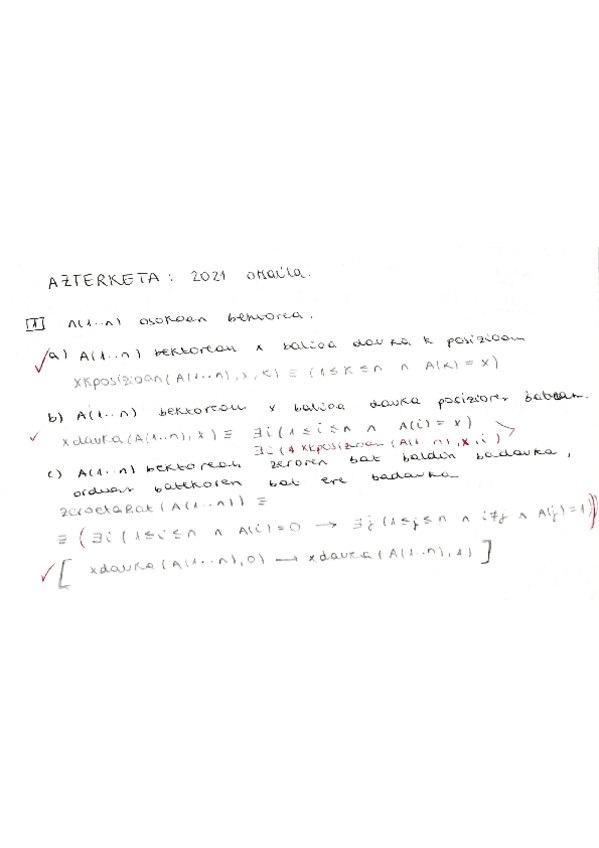 AZTERKETA : 2021 OHAIKA.
1 A(1..n) osokoen bektorea.
a) A(1..n) bektorean x balioa dauka k posizioan
xkposizioan(A(1..n), x, k) ≡ (1≤k≤n ∧ A(k) = x)
b) A(1..n) bektorean x balioa dauka posizioren batean.
xdauka(A(1..n), x) ≡ ∃i (1≤i≤n ∧ A(i) = x)
∃i ( xkposizioan (A(1..n), x, i)
c) A(1..n) bektorean zeroren bat baldin badauka,
orduan batekoren bat ere badauka
zeroetaBat (A(1..n)) ≡
≡ (∃i (1≤i≤n ∧ A(i)=0 → ∃j (1≤j≤n ∧ i≠j ∧ A(j)=1))
[ xdauka(A(1..n), 0) → xdauka(A(1..n), 1) ]